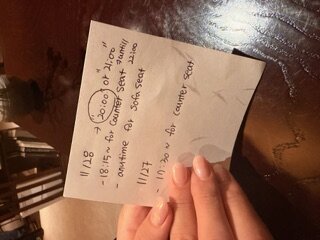 11/28 → "20:00" or "21:00"
- 18:15~ for Counter Seat
until 22:00
- anytime for Sofa seat
11/27
- 17:30~ for counter seat